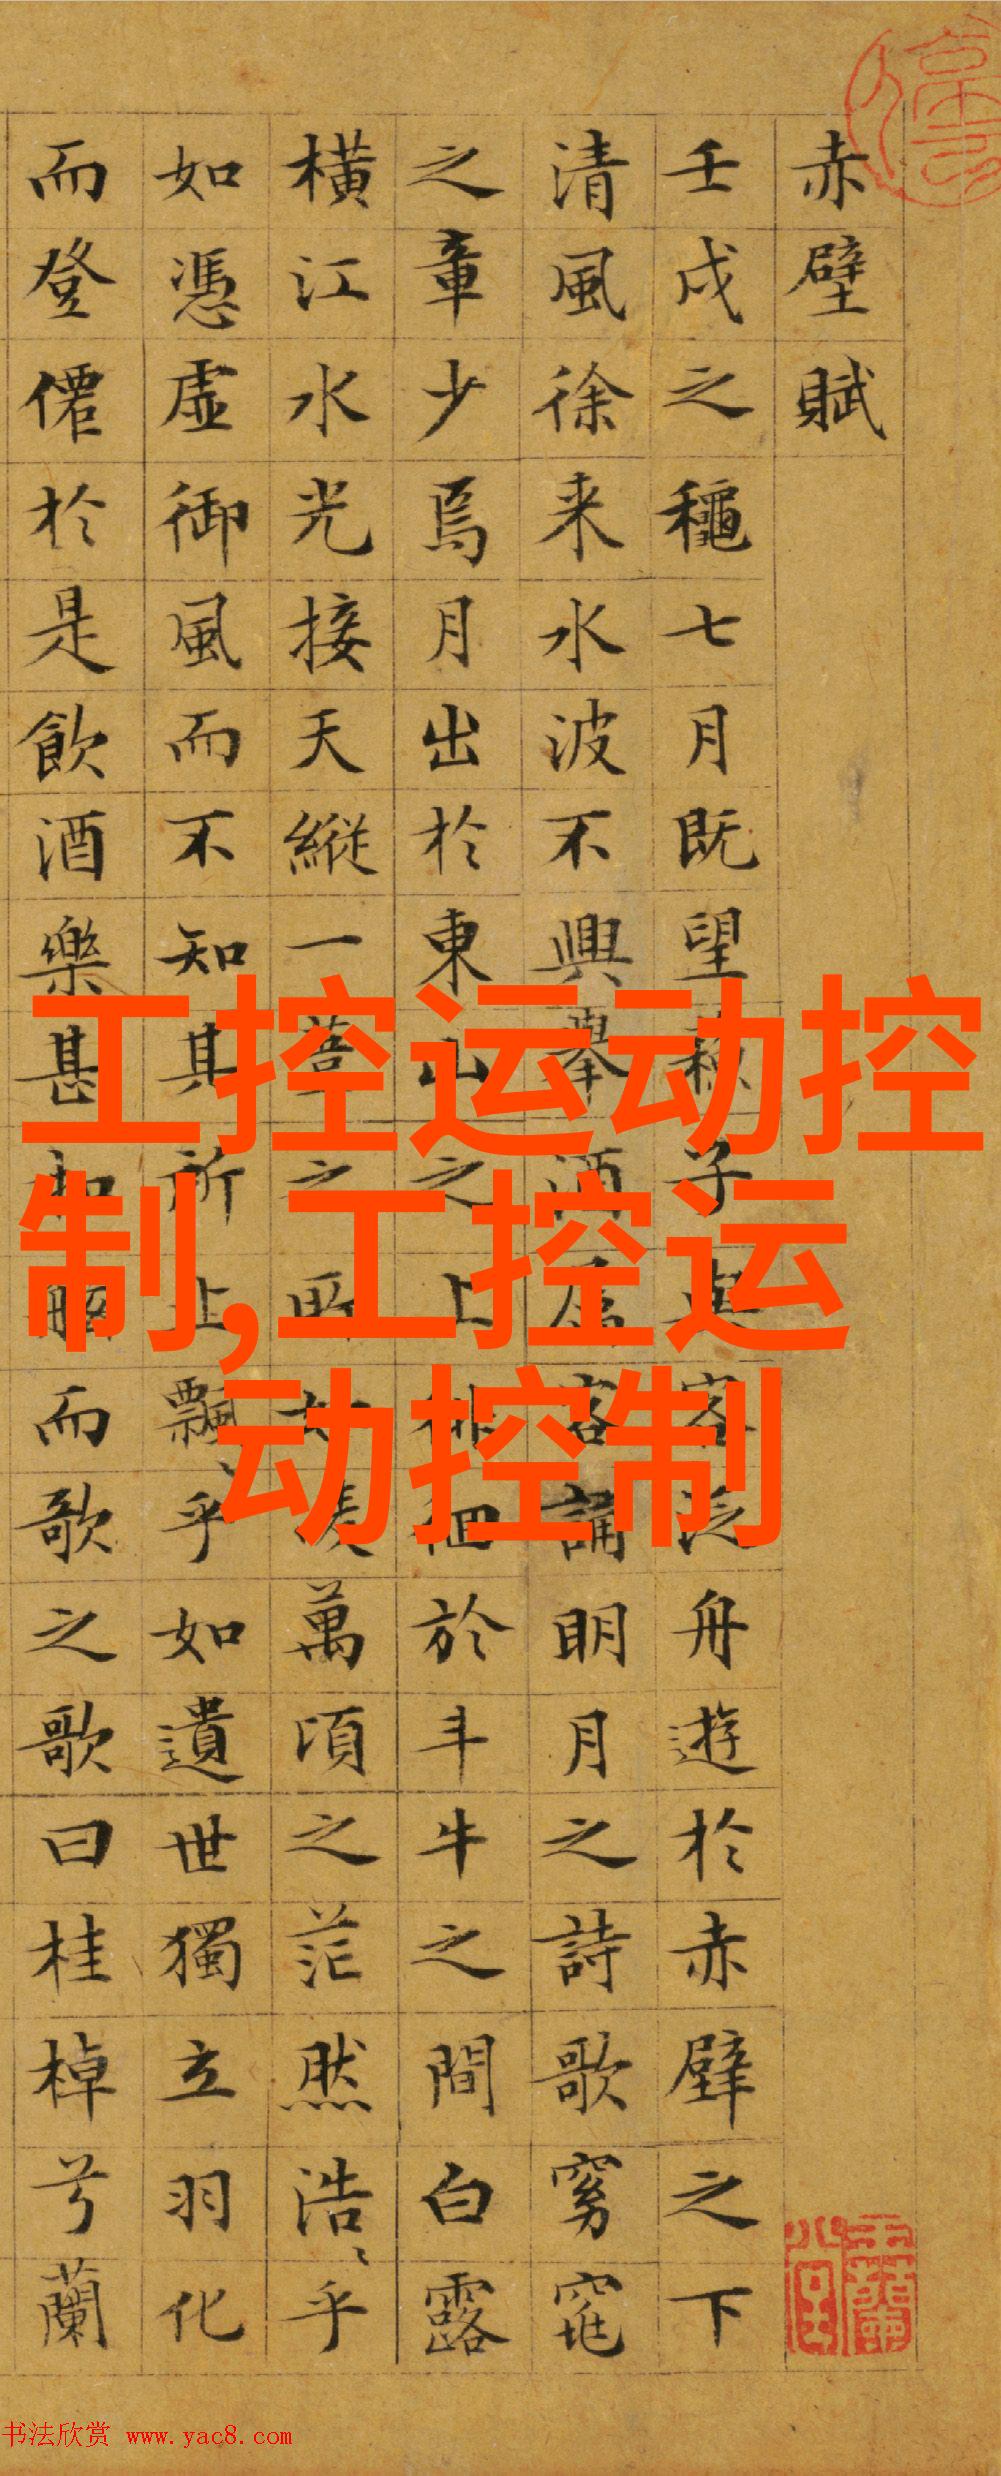 赤壁賦
壬戌之龝七月既望蘇子與客泛舟遊於赤壁之下
清風徐来水波不興舉酒屬客誦明月之詩歌窈窕
之章少焉月出於東山之上徘徊於斗牛之間白露
橫江水光接天縱一葦之所如淩萬頃之茫然浩〻乎
如憑虛御風而不知其所止飄〻乎如遺世獨立羽化
而登僊於是飲酒樂甚扣舷而歌之歌曰桂棹兮蘭
工控运动控
制,工控运
动控制
书法欣赏 www.yac8.com